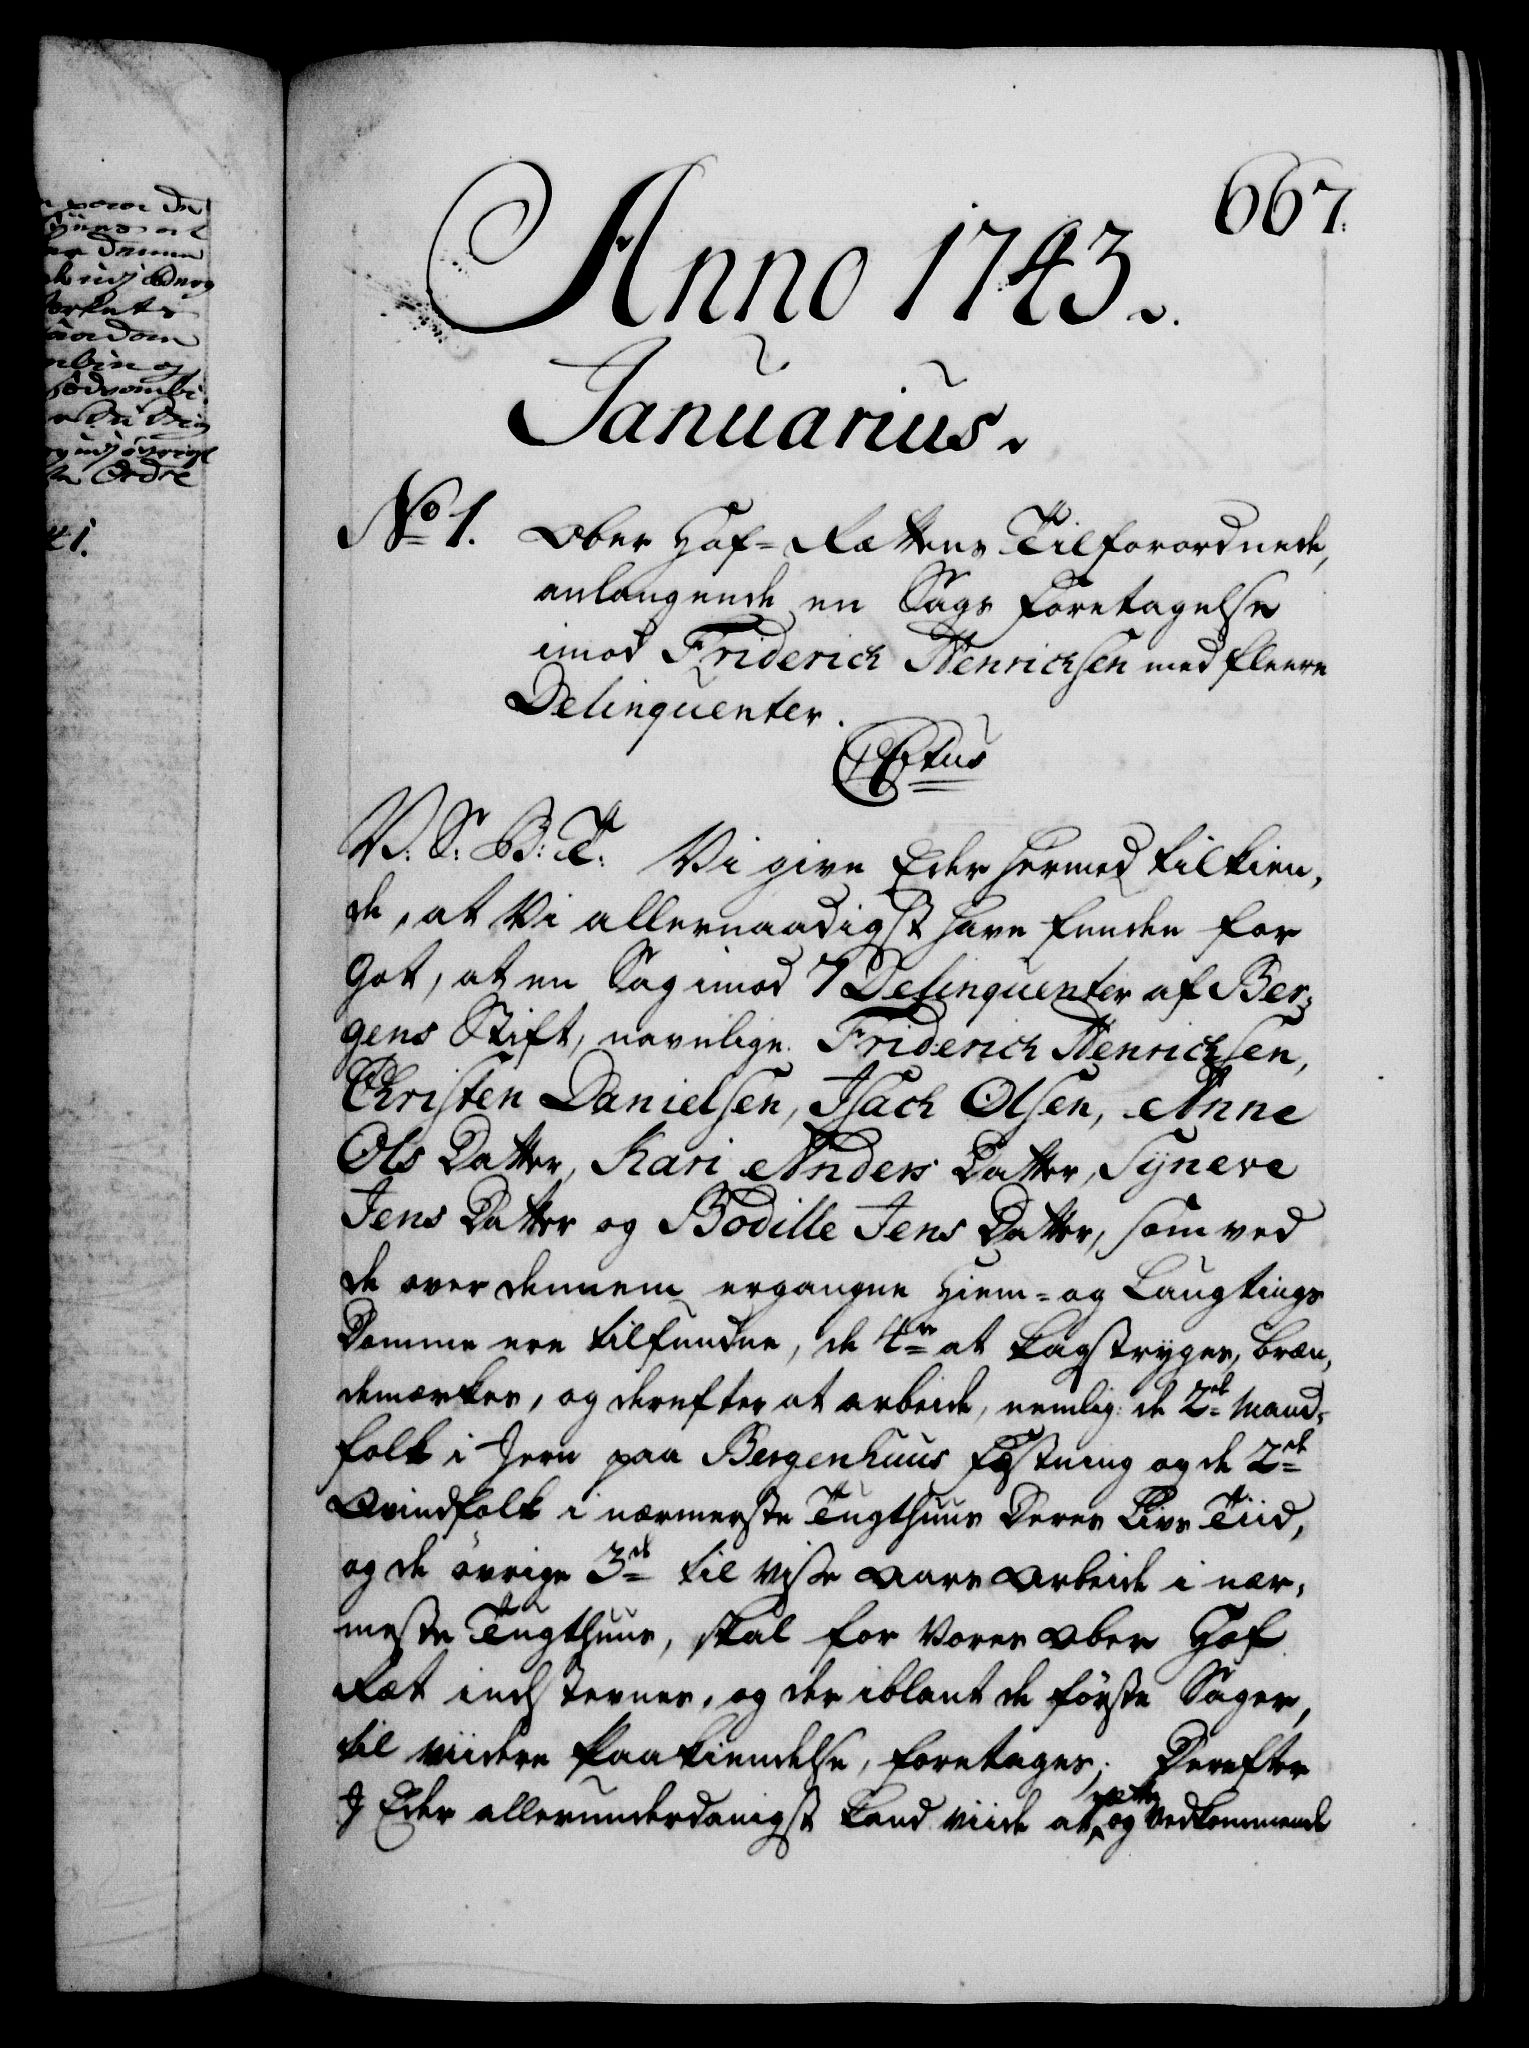 667.
Anno 1743.
Januarius.
No 1. Ober Hof-Rettens Tilforordnede,
anlangende en Sags Foretagelse
imod Friderich Henrichsen med fleere
Delinquenter.
C6tus
V: S: B: T: Vi give Eder hermed tilkien,
de, at Vi allernaadigst have funden for
got, at en Sag imod 7 Delinquenter af Ber,
gens Stift, navnlige: Friderich Henrichsen,
Christen Danielsen, Isach Olsen, Anne
Ols Datter, Kari Anders Datter, Synere
Jens Datter og Bodille Jens Datter, som ved
de over dennem ergangne Hiem- og Laugtings
Domme ere tilfundne, de 4re at kagstryges, bræn,
demærkes, og derefter at arbeide, nemlig: de 2de Mand-
folk i Jern paa Bergenhuus Fæstning og de 2de
Qvindfolk i nærmeste Tugthuus Deres Livs Tiid,
og de övrige 3de til visse Aars Arbeide i nær,
meste Tugthuus, skal for Vores Ober Hof
Ræt indstevnes, og der iblant de förste Sager,
til viidere Paakiendelse, foretages. Derefter
I Eder allerunderdanigst kand viide at rette og Vedkommende
41.
Ordre